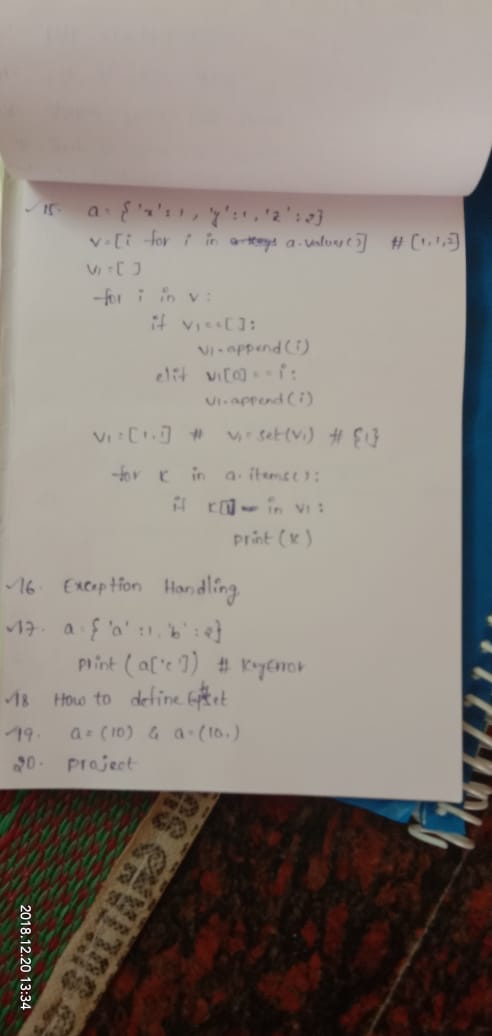 15. a={'x':1,'y':1,'z':2}
v=[i for i in a.values()] # [1,1,2]
v1=[]
for i in v:
if v1==[]:
v1.append(i)
elif v1[0]==i:
v1.append(i)
v1=[1,1] # v1=set(v1) # {1}
for k in a.items():
if k[1] in v1:
print(k)
16. Exception Handling
17. a={'a':1,'b':2}
print(a['c']) # KeyError
18 How to define set
19. a=(10) & a=(10,)
20. project
2018.12.20 13:34